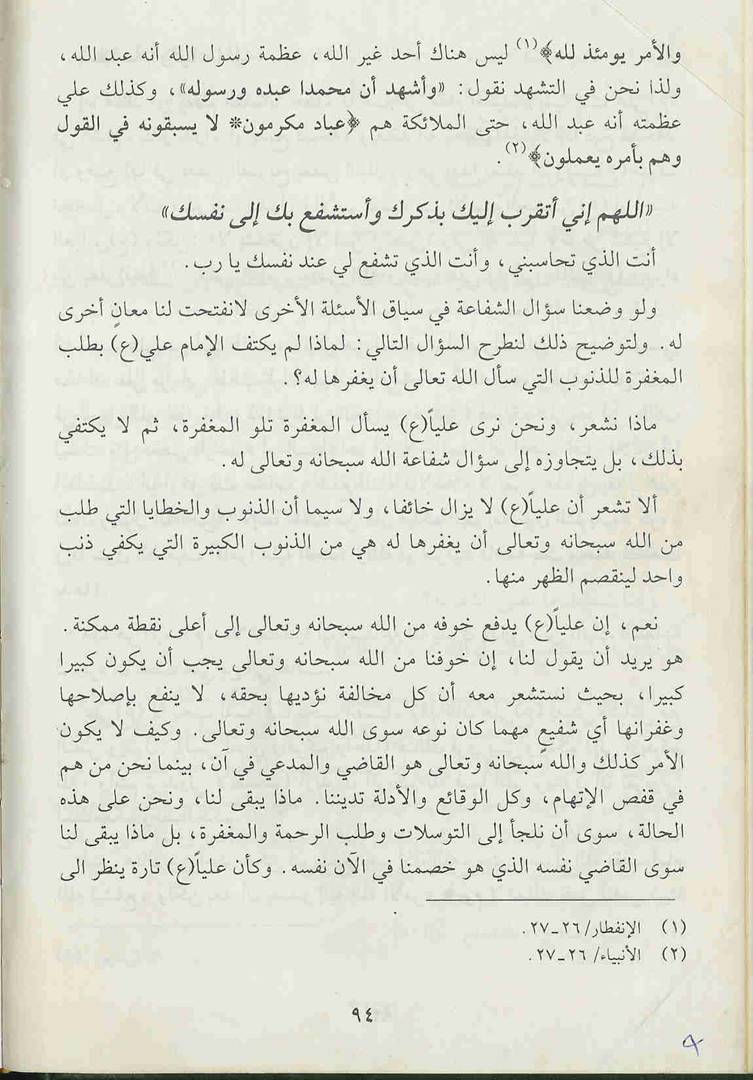 والأمر يومئذ لله﴾(١) ليس هناك أحد غير الله، عظمة رسول الله أنه عبد الله،
ولذا نحن في التشهد نقول: «وأشهد أن محمدا عبده ورسوله»، وكذلك علي
عظمته أنه عبد الله، حتى الملائكة هم ﴿عباد مكرمون* لا يسبقونه في القول
وهم بأمره يعملون﴾(٢).
«اللهم إني أتقرب إليك بذكرك وأستشفع بك إلى نفسك»
أنت الذي تحاسبني، وأنت الذي تشفع لي عند نفسك يا رب.
ولو وضعنا سؤال الشفاعة في سياق الأسئلة الأخرى لانفتحت لنا معانٍ أخرى
له. ولتوضيح ذلك لنطرح السؤال التالي: لماذا لم يكتف الإمام علي(ع) بطلب
المغفرة للذنوب التي سأل الله تعالى أن يغفرها له؟.
ماذا نشعر، ونحن نرى علياً(ع) يسأل المغفرة تلو المغفرة، ثم لا يكتفي
بذلك، بل يتجاوزه إلى سؤال شفاعة الله سبحانه وتعالى له.
ألا تشعر أن علياً(ع) لا يزال خائفا، ولا سيما أن الذنوب والخطايا التي طلب
من الله سبحانه وتعالى أن يغفرها له هي من الذنوب الكبيرة التي يكفي ذنب
واحد لينقصم الظهر منها.
نعم، إن علياً(ع) يدفع خوفه من الله سبحانه وتعالى إلى أعلى نقطة ممكنة.
هو يريد أن يقول لنا، إن خوفنا من الله سبحانه وتعالى يجب أن يكون كبيرا
كبيرا، بحيث نستشعر معه أن كل مخالفة نؤديها بحقه، لا ينفع بإصلاحها
وغفرانها أي شفيعٍ مهما كان نوعه سوى الله سبحانه وتعالى. وكيف لا يكون
الأمر كذلك والله سبحانه وتعالى هو القاضي والمدعي في آن، بينما نحن من هم
في قفص الإتهام، وكل الوقائع والأدلة تديننا. ماذا يبقى لنا، ونحن على هذه
الحالة، سوى أن نلجأ إلى التوسلات وطلب الرحمة والمغفرة، بل ماذا يبقى لنا
سوى القاضي نفسه الذي هو خصمنا في الآن نفسه. وكأن علياً(ع) تارة ينظر الى
(١) الإنفطار/٢٦-٢٧.
(٢) الأنبياء/٢٦-٢٧.
٩٤